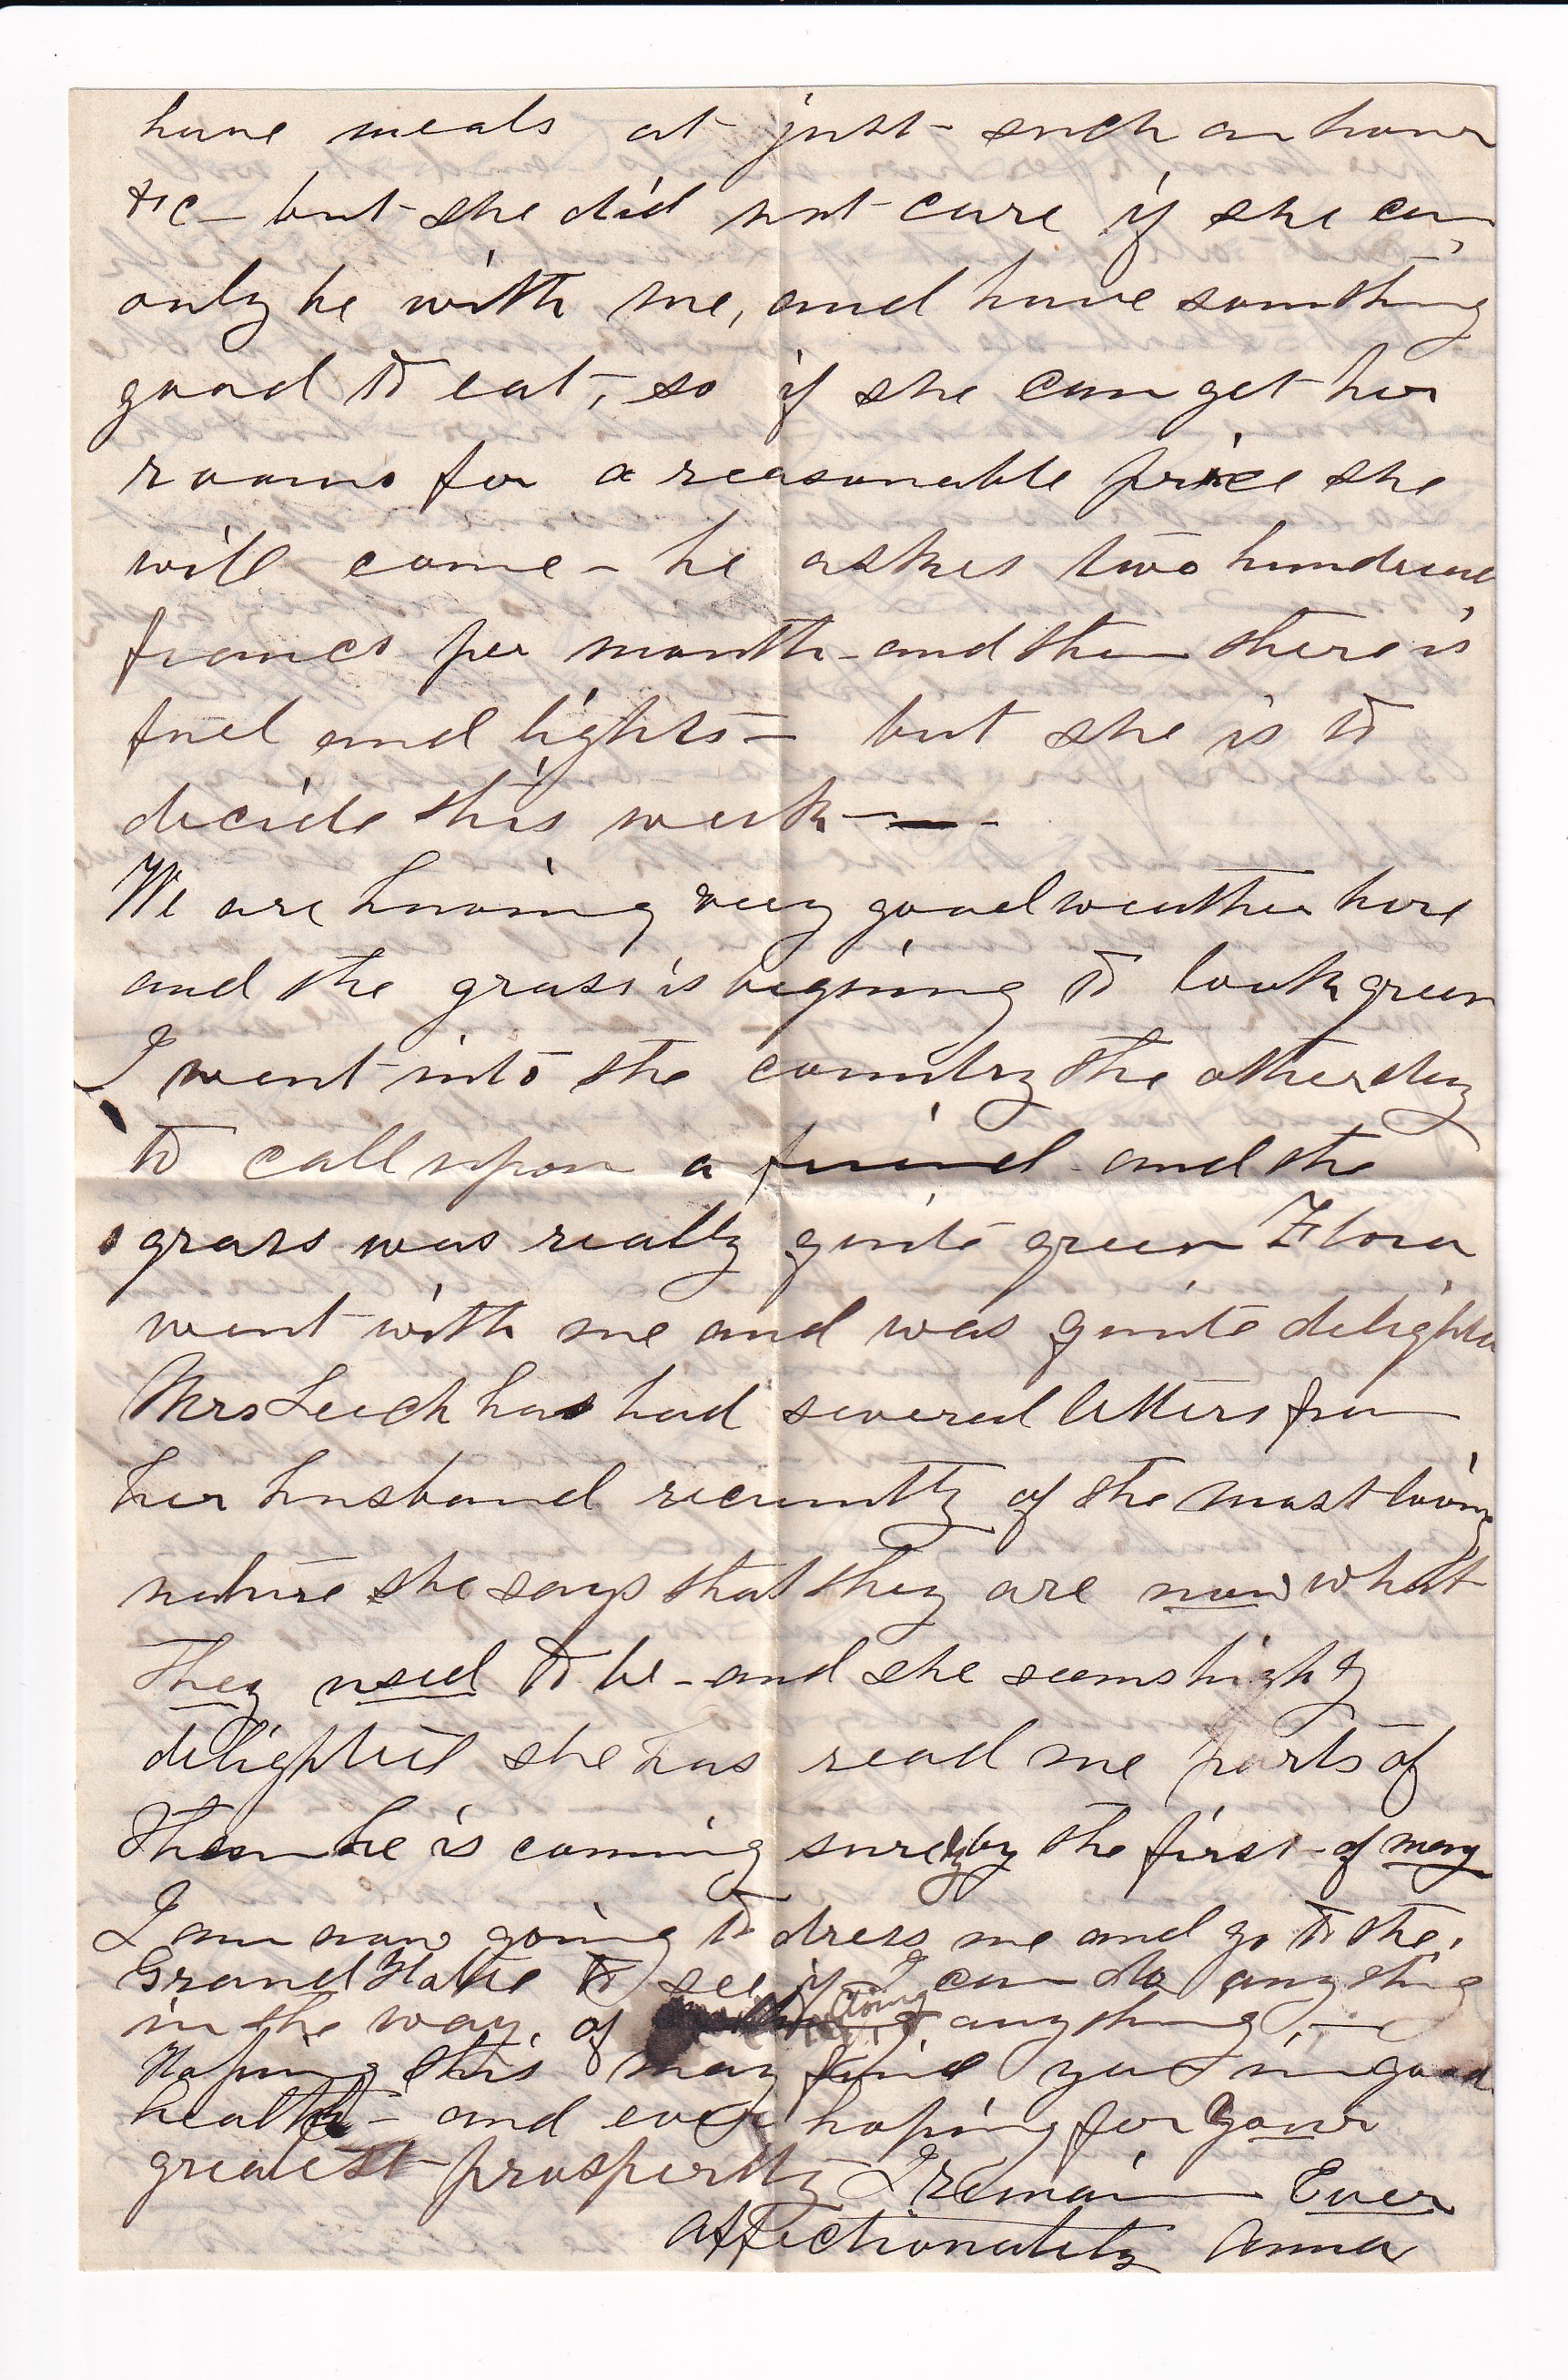 have meals at just such an hour
&c - but she did not care if she can
only be with me, and have something
good to eat, so if she can get her
rooms for a reasonable price she
will come - he askes two hundred
francs per month - and then there is
fuel and lights - but she is to
decide this week -
We are having very good weather here
and the grass is begining to look green
I went into the country the other day
to call upon a friend - and the
grass was really quite green Flora
went with me and was quite delighted
Mrs Leech has had several letters from
her husband recently of the most loving
nature she says that they are now what
They used to be - and she seems highly
delighted she has read me parts of
them he is coming surely by the first - of may
I am now going to dress me and go to the
Grand Hotel to see if I can do anything
in the way of doing anything -
Hoping this may find you in good
health - and ever hoping for your
greatest prosperity I remain Ever
affectionately Anna